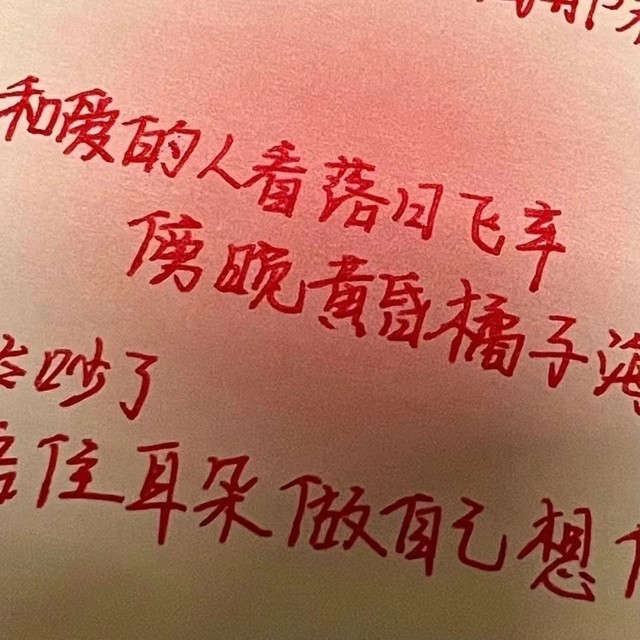 和爱的人看落日飞车
傍晚黄昏橘子海
吵了
住耳朵做自己想